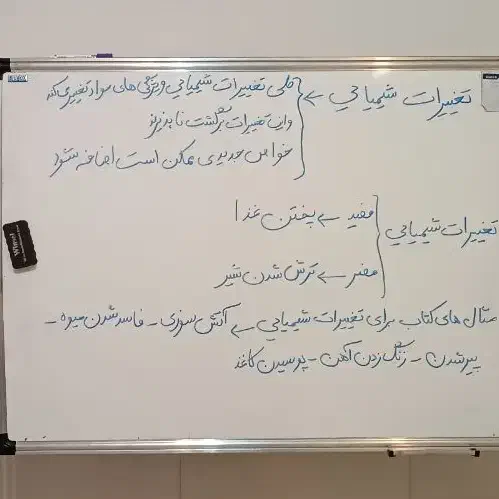 تغییرات شیمیایی ← طی تغییرات شیمیایی ویژگی های مواد تغییر می کند
واین تغییرات برگشت ناپذیرند
خواص جدیدی ممکن است اضافه شود
تغییرات شیمیایی
مفید ← پختن غذا
مضر ← ترش شدن شیر
مثال های کتاب برای تغییرات شیمیایی ← آتش سوزی - فاسد شدن میوه -
پیر شدن - زنگ زدن آهن - پوسیدن کاغذ